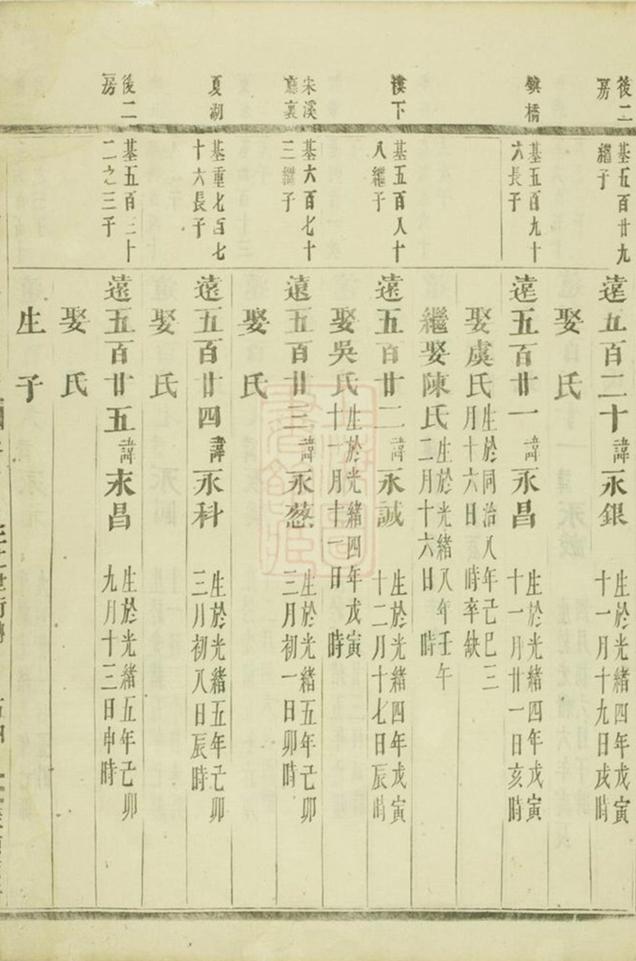 後二房
基五百廿九繼子
遠五百二十諱永銀 生於光緒四年戊寅十一月十九日戌時
娶氏
鎮橋
基五百九十六長子
遠五百廿一諱永昌 生於光緒四年戊寅十一月廿一日亥時
娶虞氏生於同治八年己巳三月十六日時卒缺
繼娶陳氏生於光緒八年壬午二月十六日時
樓下
基五百八十八繼子
遠五百廿二諱永誠 生於光緒四年戊寅十二月十七日辰時
娶吳氏生於光緒四年戊寅十一月十一日時
宋溪 裏
基六百七十三繼子
遠五百廿三諱永慈 生於光緒五年己卯三月初一日卯時
娶氏
夏湖
基重七百七十六長子
遠五百廿四諱永科 生於光緒五年己卯三月初八日辰時
娶氏
後二房
基五百三十二之三子
遠五百廿五諱永昌 生於光緒五年己卯九月十三日申時
娶氏
生子